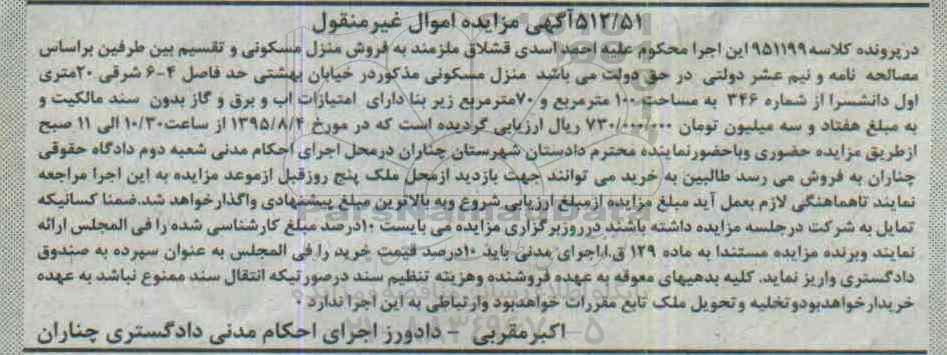 ۵۱۲/۵۱آگهی مزایده اموال غیرمنقول
درپرونده کلاسه ۹۵۱۱۹۹ این اجرا محکوم علیه احمد اسدی قشلاق ملزمند به فروش منزل مسکونی و تقسیم بین طرفین براساس
مصالحه نامه و نیم عشر دولتی در حق دولت می باشد منزل مسکونی مذکوردر خیابان بهشتی حد فاصل ۴-۶ شرقی ۲۰متری
اول دانشسرا از شماره ۳۴۶ به مساحت ۱۰۰ مترمربع و ۷۰مترمربع زیر بنا دارای امتیازات اب و برق و گاز بدون سند مالکیت و
به مبلغ هفتاد و سه میلیون تومان ۷۳۰/۰۰۰/۰۰۰ ریال ارزیابی گردیده است که در مورخ ۱۳۹۵/۸/۴ از ساعت۱۰/۳۰ الی ۱۱ صبح
ازطریق مزایده حضوری وباحضورنماینده محترم دادستان شهرستان چناران درمحل اجرای احکام مدنی شعبه دوم دادگاه حقوقی
چناران به فروش می رسد طالبین به خرید می توانند جهت بازدید ازمحل ملک پنج روزقبل ازموعد مزایده به این اجرا مراجعه
نمایند تاهماهنگی لازم بعمل آید مبلغ مزایده ازمبلغ ارزیابی شروع وبه بالاترین مبلغ پیشنهادی واگذارخواهد شد.ضمنا کسانیکه
تمایل به شرکت درجلسه مزایده داشته باشند درروزبرگزاری مزایده می بایست ۱۰درصد مبلغ کارشناسی شده را فی المجلس ارائه
نمایند وبرنده مزایده مستندا به ماده ۱۲۹ ق.ا.اجرای مدنی باید ۱۰درصد قیمت خرید را فی المجلس به عنوان سپرده به صندوق
دادگستری واریز نماید. کلیه بدهیهای معوقه به عهده فروشنده وهزینه تنظیم سند درصورتیکه انتقال سند ممنوع نباشد به عهده
خریدارخواهدبودوتخلیه وتحویل ملک تابع مقررات خواهدبود وارتباطی به این اجرا ندارد .
اکبرمقربی - دادورز اجرای احکام مدنی دادگستری چناران
ParsNamadData